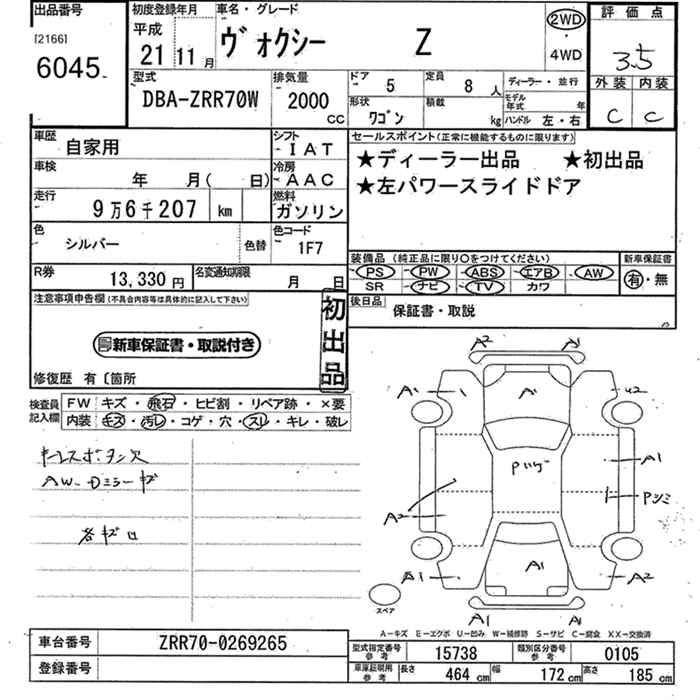 出品番号
[2166]
6045
初度登録年月
平成
21 11 月
車名・グレード
ヴォクシー Z
2WD
・
4WD
評価点
3.5
外装 内装
C C
型式
DBA-ZRR70W
排気量
2000
CC
ドア
5
定員
8 人
形状
ワゴン
積載
kg
ディーラー・並行
モデル年式 年
ハンドル 左・右
車歴
自家用
シフト
IAT
車検
年 月( 日)
冷房
AAC
走行
9万6千207 km
燃料
ガソリン
色
シルバー
色替
色コード
1F7
R券
13,330 円
名変通知期限
月 日
セールスポイント(正常に機能するものに限ります)
★ディーラー出品 ★初出品
★左パワースライドドア
装備品 (純正品に限り〇をつけてください)
PS PW ABS エアB AW
SR ナビ TV カワ
新車保証書
有・無
後日品
保証書・取説
注意事項申告欄(不具合内容等は具体的に記入して下さい)
初出品
新車保証書・取説付き
修復歴 有〔箇所
検査員記入欄
FW キズ・飛石・ヒビ割・リペア跡・×要
内装 キズ・汚レ・コゲ・穴・スレ・キレ・破レ
キーレスボタン穴
AW-Dミラーキズ
各キズ凹
A2 A1
A1 A1 U2
A1
A2
A1 A1 A2
A1 A1
スペア
A-キズ E-エクボ U-凹み W-補修跡 S-サビ C-腐食 XX-交換済
車台番号
ZRR70-0269265
登録番号
型式指定番号
参考
15738
類別区分番号
参考
0105
車庫証明用
参考
長さ 464 cm
幅 172 cm
高さ 185 cm